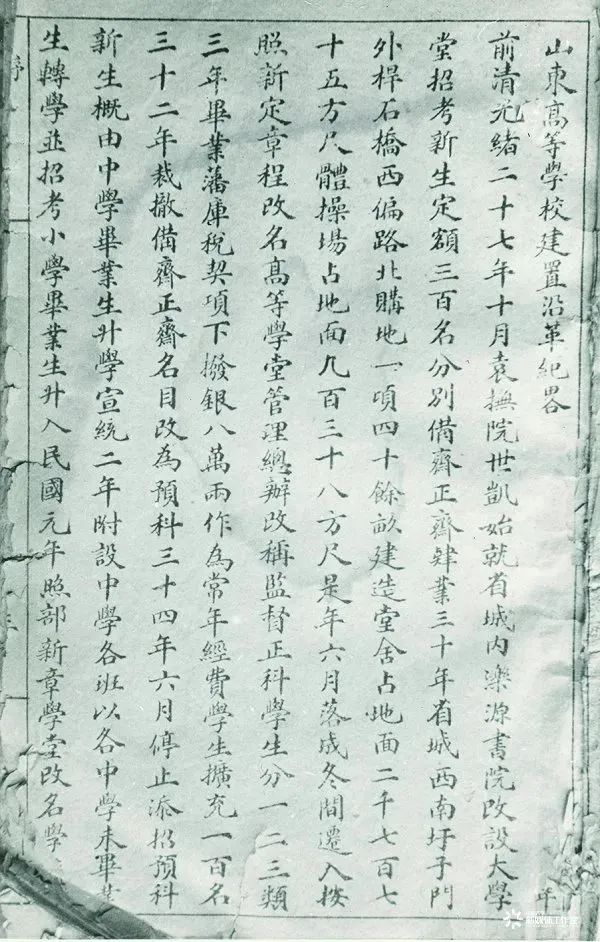 山東高等學校建置沿革紀畧
前清光緒二十七年十月袁撫院世凱始就省城内濼源書院改設大學
堂招考新生定額三百名分別備齋正齋肄業三十年省城西南圩子門
外桿石橋西偏路北購地一項四十餘畝建造堂舍占地面二千七百七
十五方尺體操場占地面九百三十八方尺是年六月落成冬間遷入按
照新定章程改名高等學堂管理總辦改稱監督正科學生分一二三類
三年畢業藩庫稅契項下撥銀八萬兩作為常年經費學生擴充一百名
三十二年裁撤備齋正齋名目改為預科三十四年六月停止添招預科
新生概由中學畢業生升學宣統二年附設中學各班以各中學未畢業
生轉學並招考小學畢業生升入民國元年照部新章學堂改名學
序
新媒体工作室